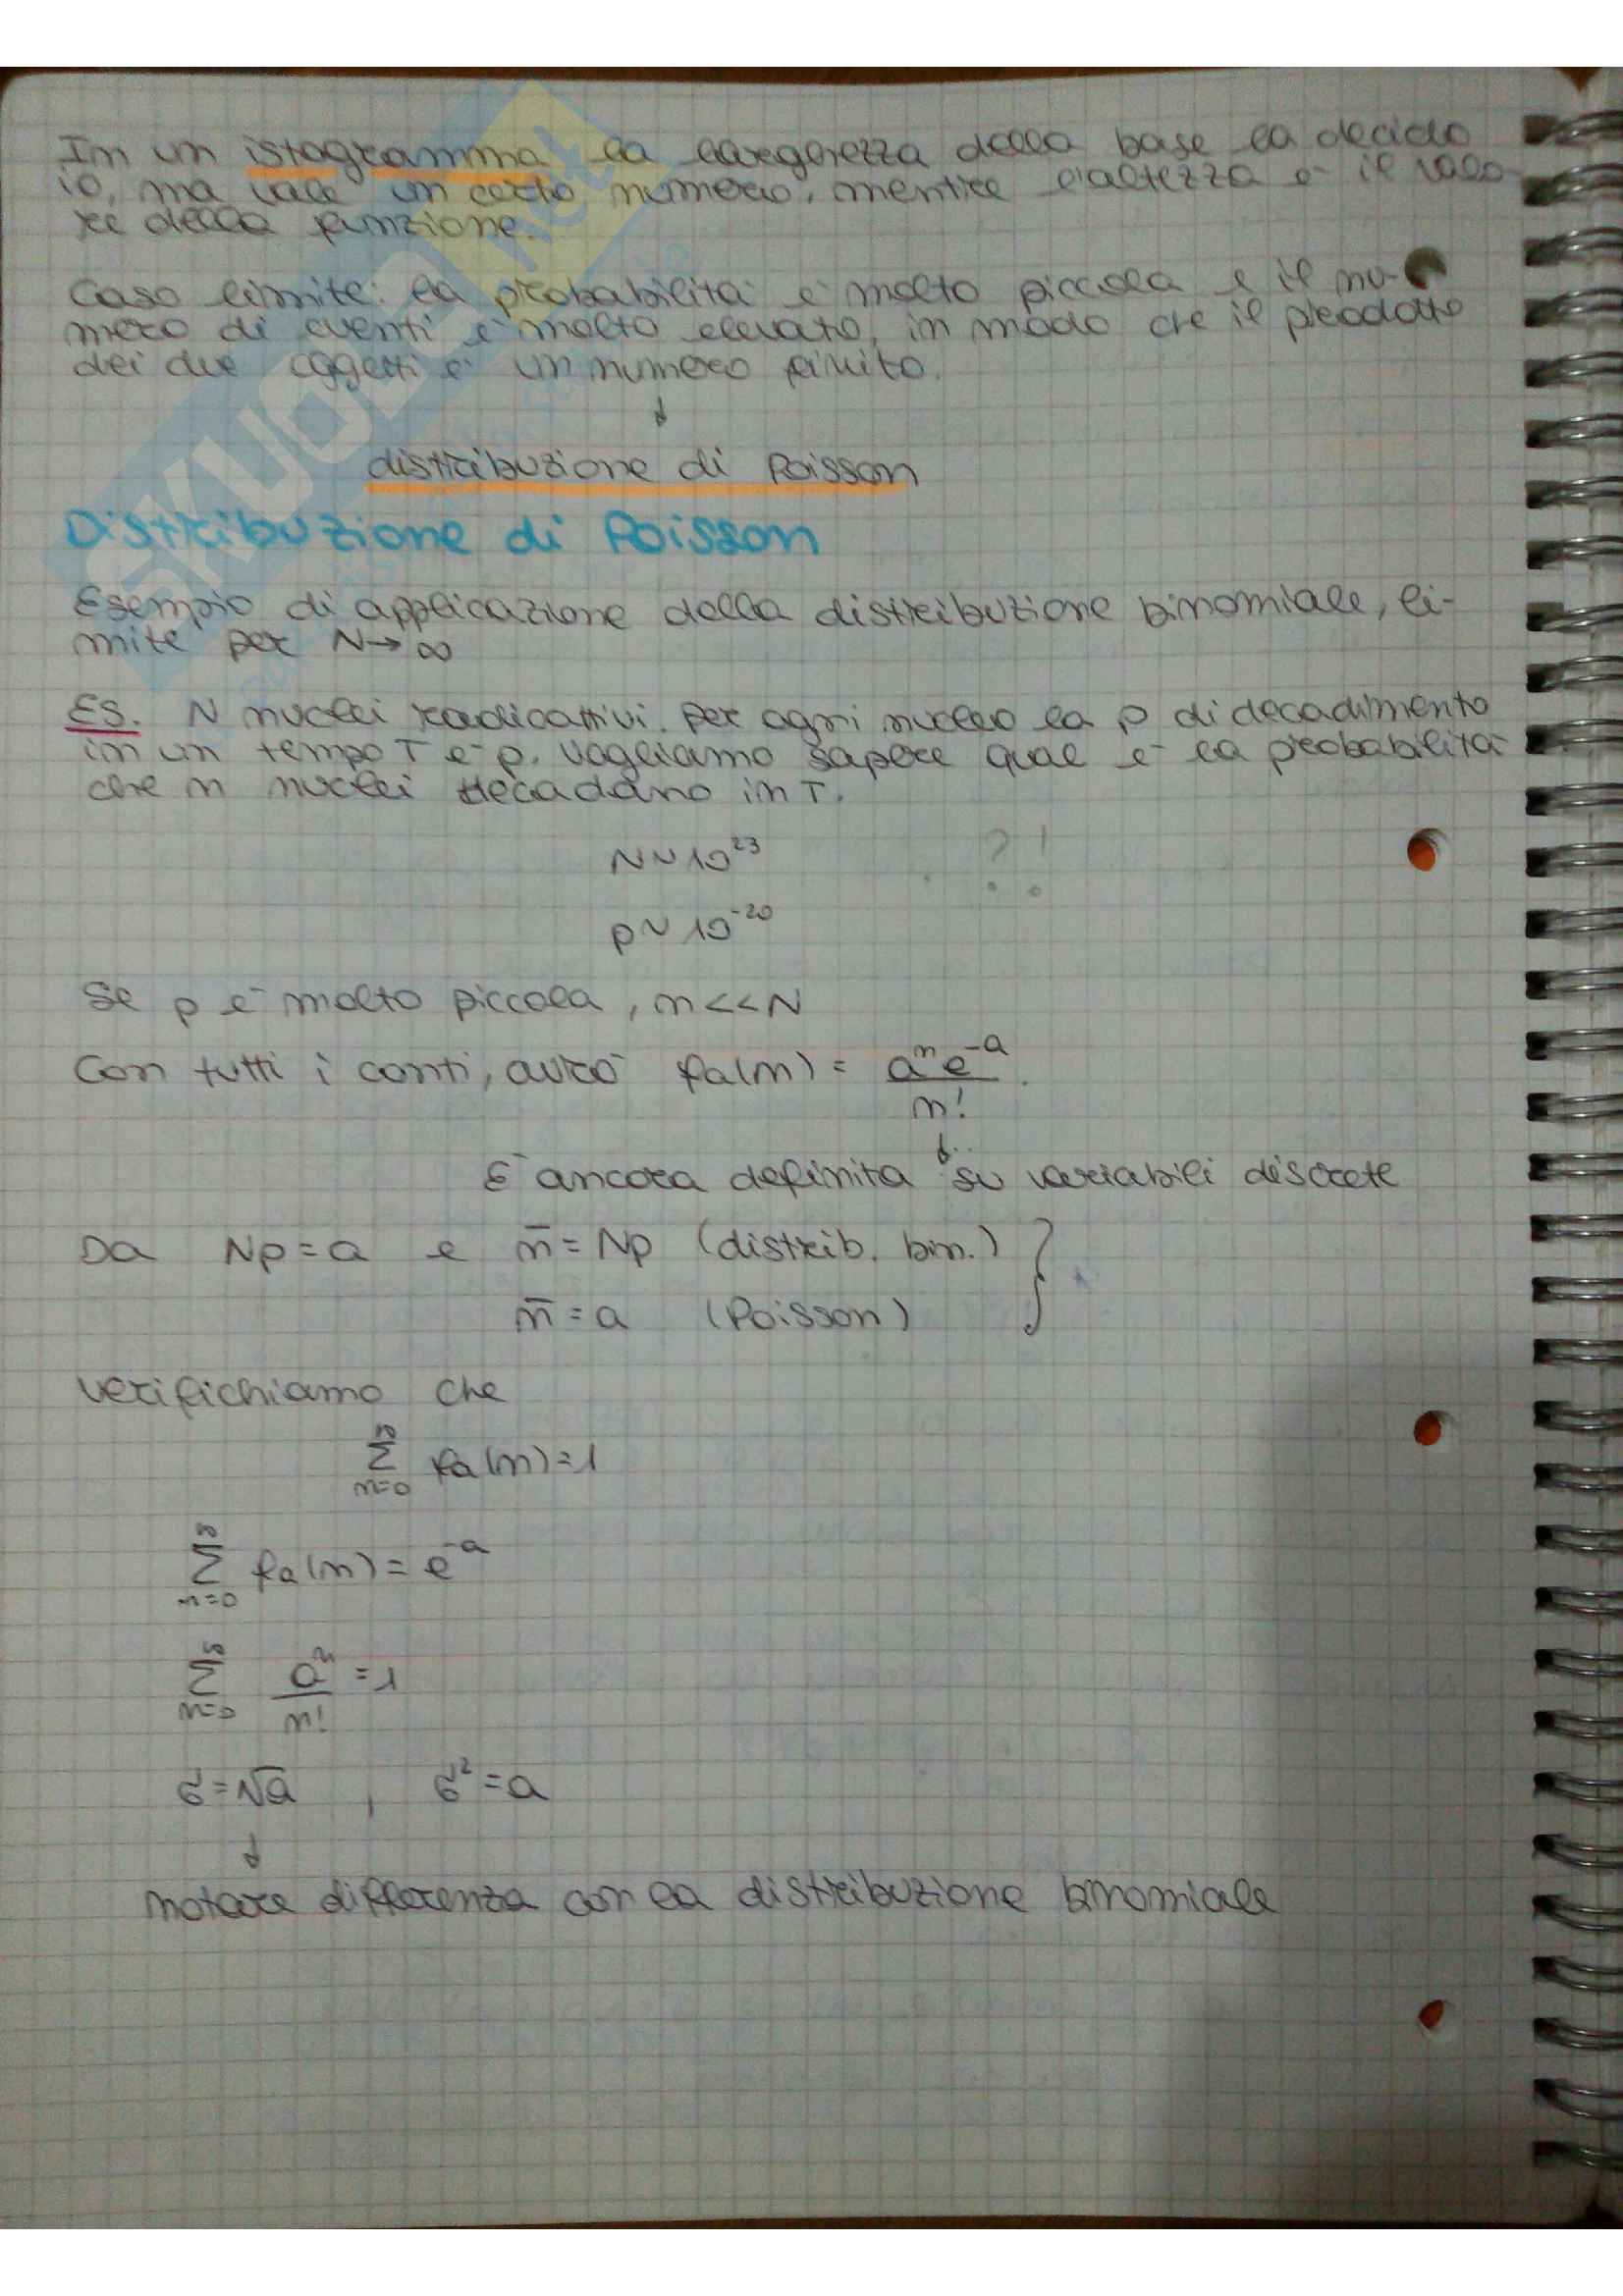 In un istogramma la larghezza della base la decido
io, ma vale un certo numero, mentre l'altezza è il valo-
re della funzione.
Caso limite: la probabilità è molto piccola e il nu-
mero di eventi è molto elevato, in modo che il prodotto
dei due oggetti è un numero finito.
↓
distribuzione di Poisson
Distribuzione di Poisson
Esempio di applicazione della distribuzione binomiale, li-
mite per N→∞
Es. N nuclei radioattivi. Per ogni nucleo la p di decadimento
in un tempo T è p. Vogliamo sapere qual è la probabilità
che n nuclei decadano in T.
N ~ 10²³ ?!
p ~ 10⁻²⁰
Se p è molto piccola, n << N
Con tutti i conti, avrò fa(n) = aⁿe⁻ᵃ / n!
↓
È ancora definita su variabili discrete
Da Np = a e n̄ = Np (distrib. bin.) }
n̄ = a (Poisson)
Verifichiamo che
∞ Σ n=0 fa(n) = 1
∞ Σ n=0 fa(n) = e⁻ᵃ
∞ Σ n=0 aⁿ / n! = 1
σ = √a , σ² = a
↓
notare differenza con la distribuzione binomiale
SKUOLA.net